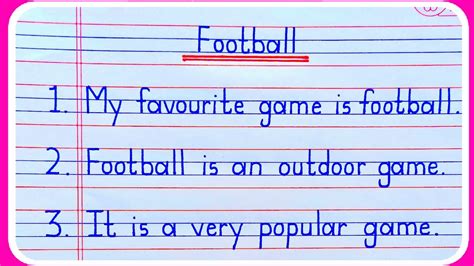 Football
1. My favourite game is football.
2. Football is an outdoor game.
3. It is a very popular game.